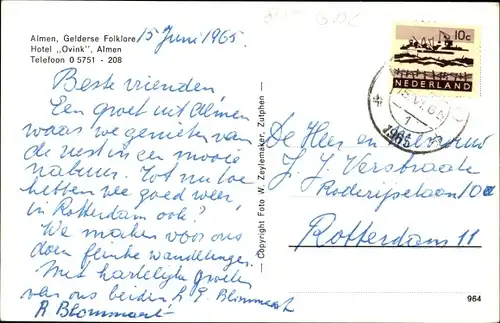 Almen, Gelderse Folklore
Hotel „Ovink", Almen
Telefoon 0 5751 - 208
15 Juni 1965.
Beste vrienden
Een groet uit Almen
waar we genieten van
de rust en een mooie
natuur. Tot nu toe
hebben we goed weer,
in Rotterdam ook?
We maken voor ons
doen flinke wandelingen.
Met hartelijke groeten
van ons beiden L E Blommaert
A Blommaert
— Copyright Foto W. Zeylemaker, Zutphen —
10c
NEDERLAND
1965
De Heer en Mevrouw
J. J. Versbraate
Roderijselaan 10a
Rotterdam 11
964